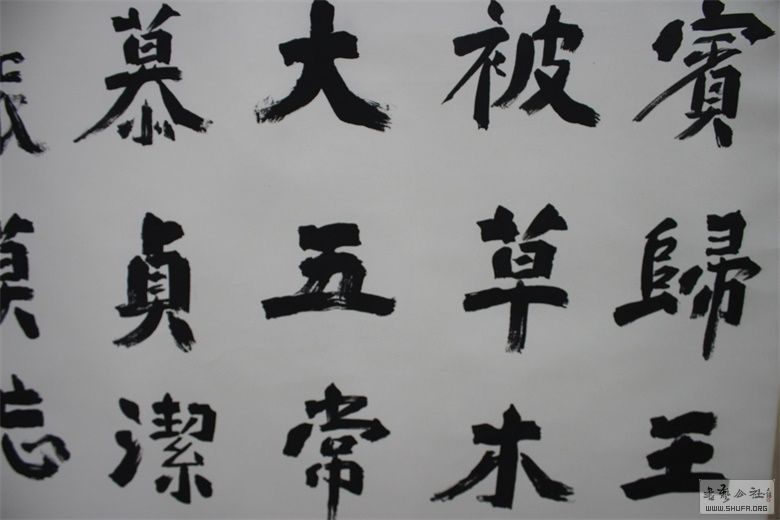 賓歸王
被草木
大五常
慕貞潔
莫忘
书艺公社
WWW.SHUFA.ORG